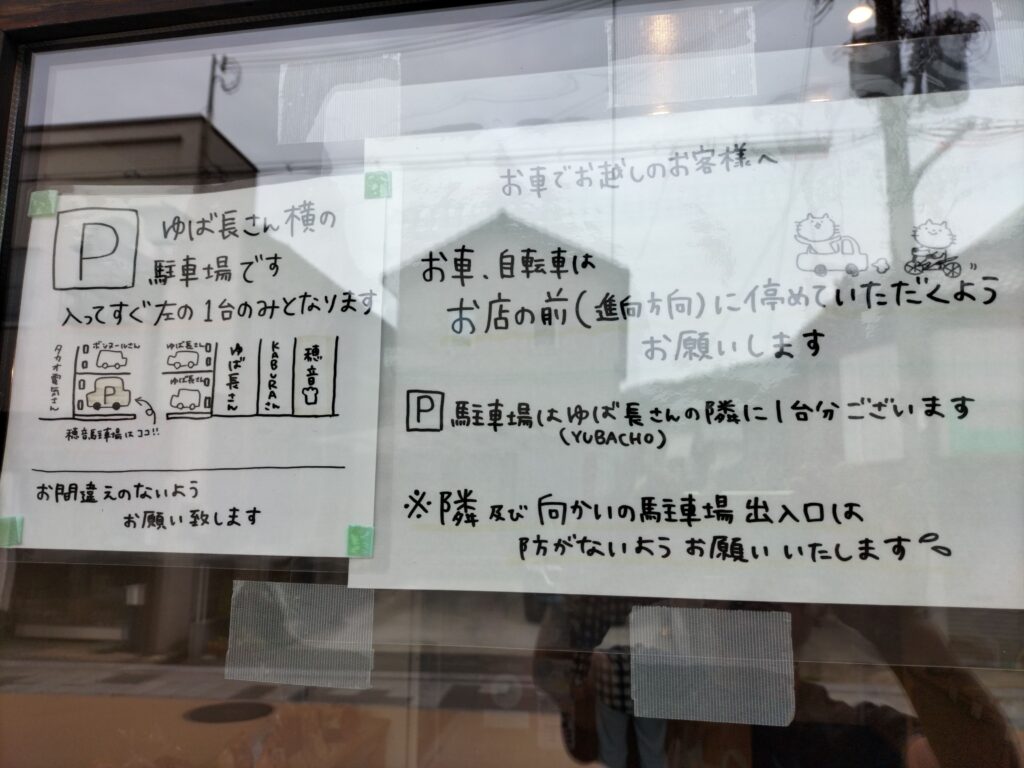 P
ゆば長さん横の
駐車場です
入ってすぐ左の1台のみとなります
タカオ電気さん
ボンヌールさん
P
ゆば長さん
ゆば長さん
ゆば長さん
KABURAさん
穂音
穂音駐車場はココ!!
お間違えのないよう
お願い致します
お車でお越しのお客様へ
お車、自転車は
お店の前(進向方向)に停めていただくよう
お願いします
P 駐車場はゆば長さんの隣に1台分ございます
(YUBACHO)
※隣及び向かいの駐車場出入口は
防がないようお願いいたします